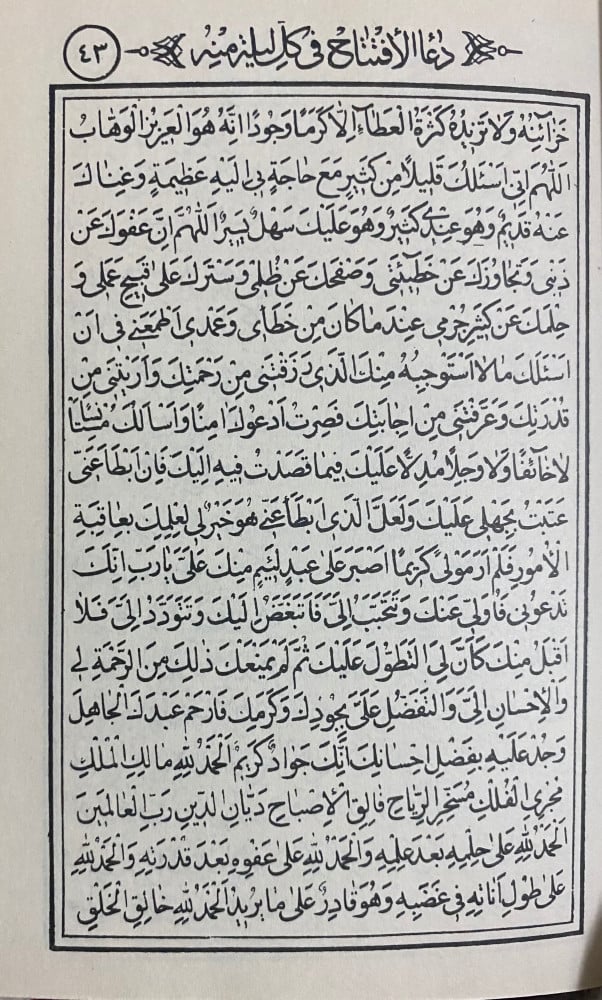 دعاء الافتتاح في كل ليلة منه
٤٣
خَزَآئِنُهُ وَلَا تَزِيدُهُ كَثْرَةُ الْعَطَآءِ إِلَّا كَرَمًا وَجُودًا إِنَّهُ هُوَ الْعَزِيزُ الْوَهَّابُ
اَللّٰهُمَّ إِنِّي اَسْئَلُكَ قَلِيلًا مِنْ كَثِيرٍ مَعَ حَاجَةٍ بِي إِلَيْهِ عَظِيمَةٍ وَغِنَاكَ
عَنْهُ قَدِيمٌ وَهُوَ عِنْدِي كَثِيرٌ وَهُوَ عَلَيْكَ سَهْلٌ يَسِيرٌ اَللّٰهُمَّ إِنَّ عَفْوَكَ عَنْ
ذَنْبِي وَتَجَاوُزَكَ عَنْ خَطِيئَتِي وَصَفْحَكَ عَنْ ظُلْمِي وَسَتْرَكَ عَلَى قَبِيحِ عَمَلِي وَ
حِلْمَكَ عَنْ كَثِيرِ جُرْمِي عِنْدَ مَا كَانَ مِنْ خَطَاىَ وَعَمْدِي اَطْمَعَنِي فِي اَنْ
اَسْئَلَكَ مَا لَا اَسْتَوْجِبُهُ مِنْكَ الَّذِي رَزَقْتَنِي مِنْ رَحْمَتِكَ وَاَرَيْتَنِي مِنْ
قُدْرَتِكَ وَعَرَّفْتَنِي مِنْ اِجَابَتِكَ فَصِرْتُ اَدْعُوكَ اٰمِنًا وَاَسْاَلُكَ مُسْتَاْنِسًا
لَا خَآئِفًا وَلَا وَجِلًا مُدِلًّا عَلَيْكَ فِيمَا قَصَدْتُ فِيهِ اِلَيْكَ فَاِنْ اَبْطَاَ عَنِّي
عَتَبْتُ بِجَهْلِي عَلَيْكَ وَلَعَلَّ الَّذِي اَبْطَاَ عَنِّي هُوَ خَيْرٌ لِي لِعِلْمِكَ بِعَاقِبَةِ
الْاُمُورِ فَلَمْ اَرَ مَوْلًى كَرِيمًا اَصْبَرَ عَلَى عَبْدٍ لَئِيمٍ مِنْكَ عَلَيَّ يَا رَبِّ اِنَّكَ
تَدْعُونِي فَاُوَلِّي عَنْكَ وَتَتَحَبَّبُ اِلَيَّ فَاَتَبَغَّضُ اِلَيْكَ وَتَتَوَدَّدُ اِلَيَّ فَلَا
اَقْبَلُ مِنْكَ كَاَنَّ لِيَ التَّطَوُّلَ عَلَيْكَ ثُمَّ لَمْ يَمْنَعْكَ ذٰلِكَ مِنَ الرَّحْمَةِ لِي
وَالْاِحْسَانِ اِلَيَّ وَالتَّفَضُّلِ عَلَيَّ بِجُودِكَ وَكَرَمِكَ فَارْحَمْ عَبْدَكَ الْجَاهِلَ
وَجُدْ عَلَيْهِ بِفَضْلِ اِحْسَانِكَ اِنَّكَ جَوَادٌ كَرِيمٌ اَلْحَمْدُ لِلّٰهِ مَالِكِ الْمُلْكِ
مُجْرِي الْفُلْكِ مُسَخِّرِ الرِّيَاحِ فَالِقِ الْاِصْبَاحِ دَيَّانِ الدِّينِ رَبِّ الْعَالَمِينَ
اَلْحَمْدُ لِلّٰهِ عَلَى حِلْمِهِ بَعْدَ عِلْمِهِ وَالْحَمْدُ لِلّٰهِ عَلَى عَفْوِهِ بَعْدَ قُدْرَتِهِ وَالْحَمْدُ لِلّٰهِ
عَلَى طُولِ اَنَاتِهِ فِي غَضَبِهِ وَهُوَ قَادِرٌ عَلَى مَا يُرِيدُ اَلْحَمْدُ لِلّٰهِ خَالِقِ الْخَلْقِ